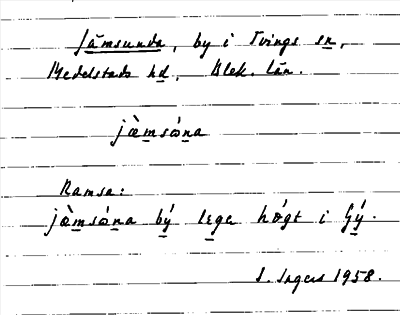 Jämsunda, by i Tvings sn,
Medelstads hd, Blek. län.
jæ̀msὼna
Ramsa:
jæ̀msὼna bý lega hǿgt i Gý.
1958.